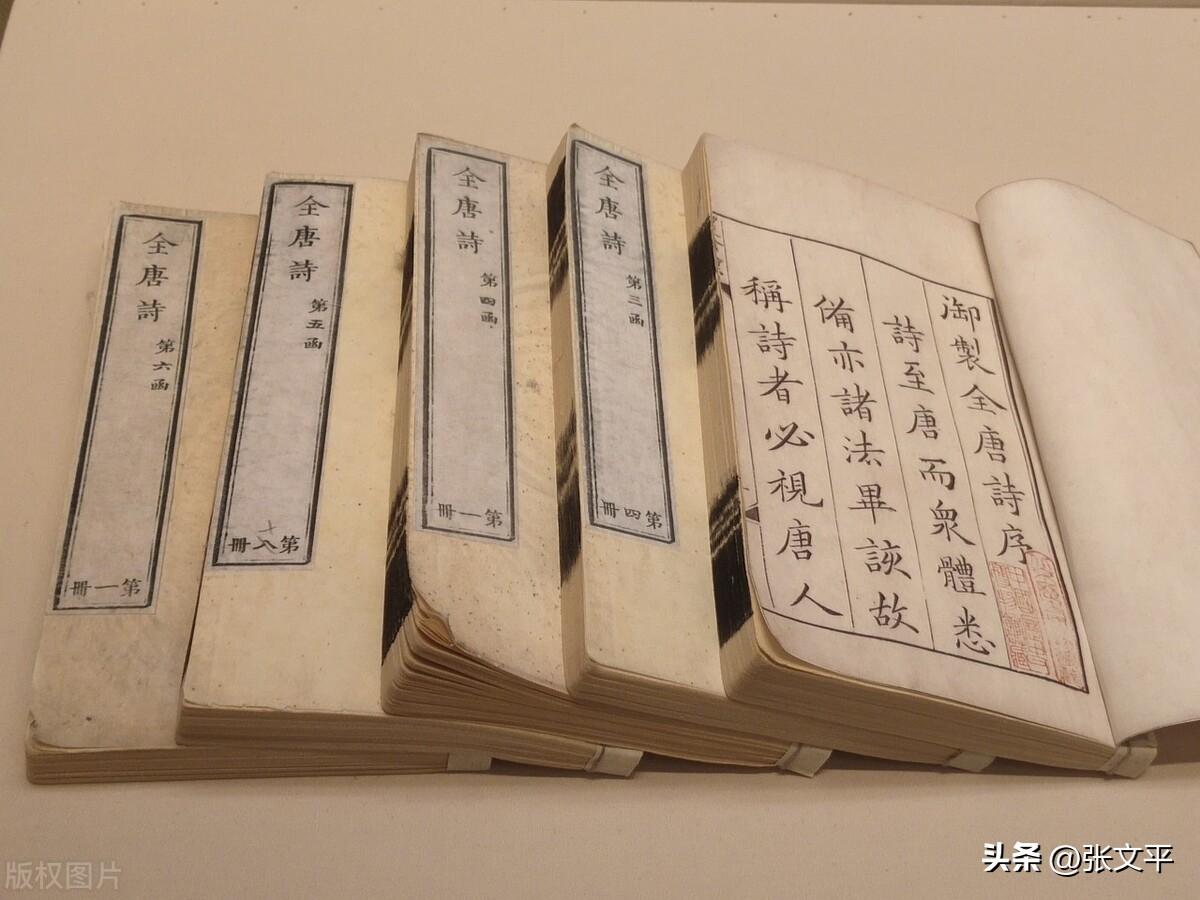 御製全唐詩序
詩至唐而衆體悉
備亦諸法畢該故
稱詩者必視唐人
全唐詩
第三函
第四冊
全唐詩
第四函
第一冊
全唐詩
第五函
第八冊
全唐詩
第六函
第一冊
版权图片
头条 @张文平